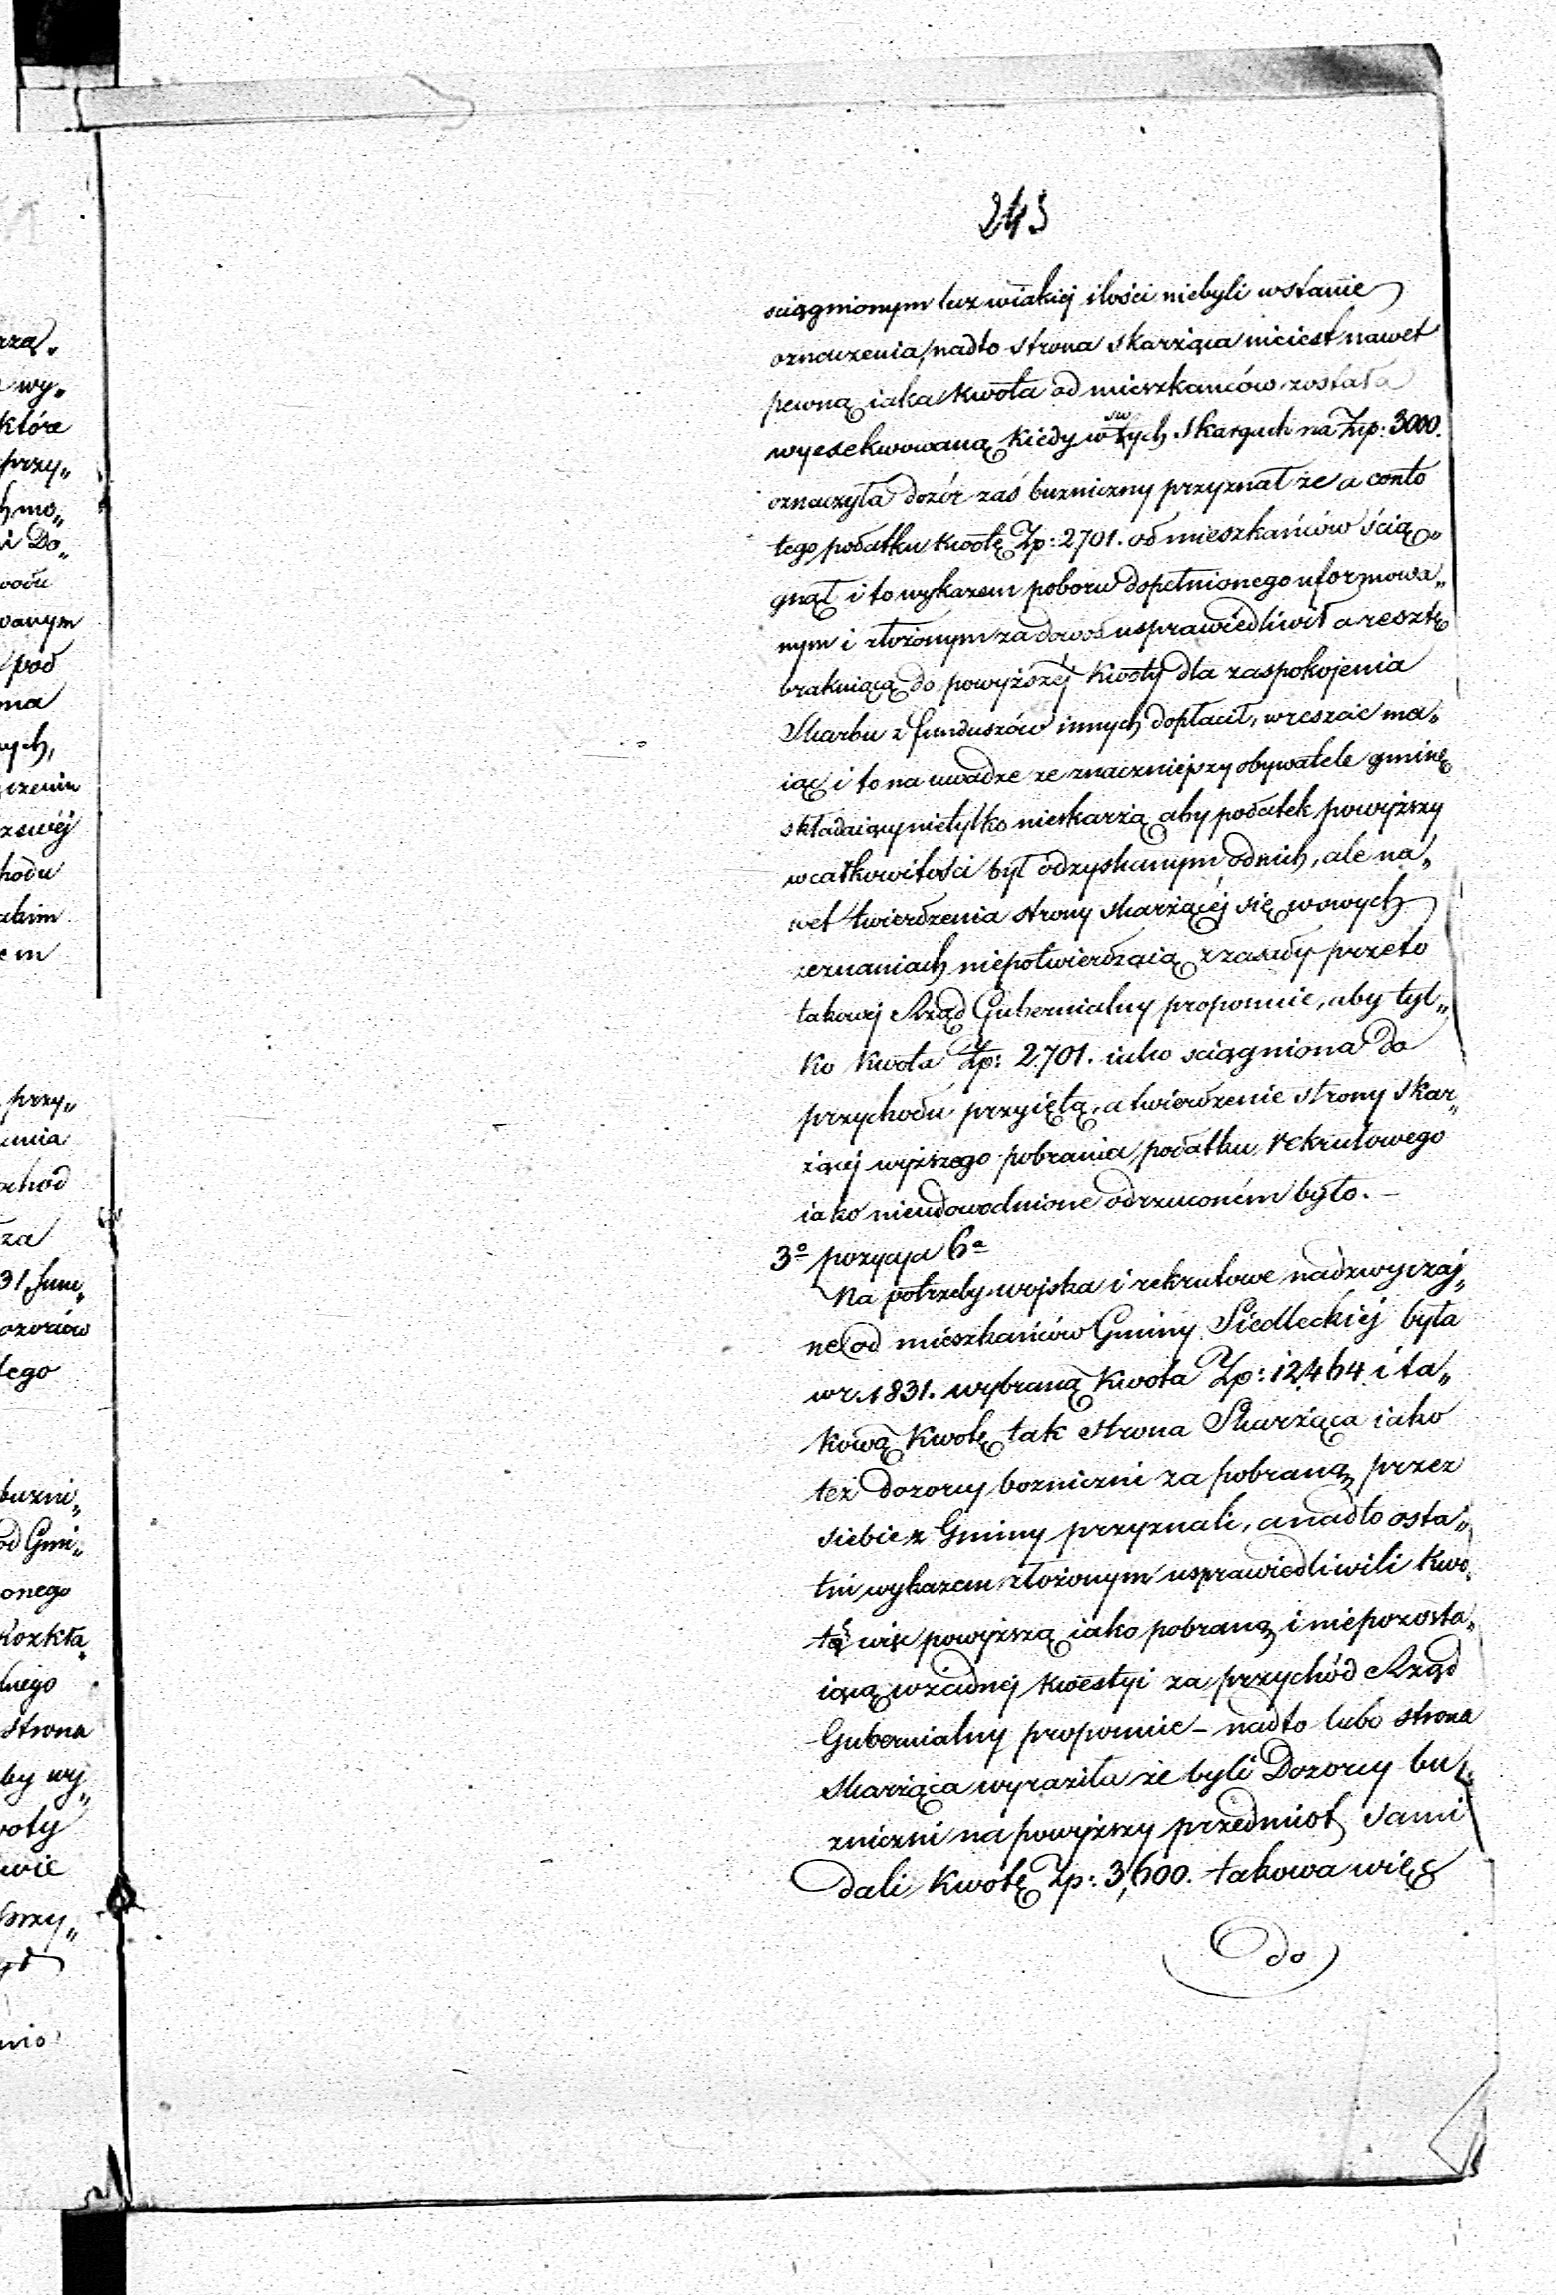 243
sciągnionym lecz wiakiej ilości niebyli wstanie
oznaczenia, nadto strona skarżąca nieiest nawet
pewną iaka kwota od mieszkańców została
wyexekwowaną kiedy w swych skargach na Złp: 3000.
oznaczyła dozór zaś bużniczny przyznał że a conto
tego podatku kwotę Zp: 2701. od mieszkańców ścią„
gnął i to wykazem poboru dopełnionego uformowa„
nym i złożonym za dowód usprawiedliwił a resztę
brakuiącą do powyższéj kwoty dla zaspokojenia
Skarbu z funduszów innych dopłacił, wreszcie ma„
iąc i to na uwadze ze znacznieyszy obywatele gminę
składaiący nietylko nieskarżą aby podatek powyższy
wcałkowitości był odzyskanym odnich, ale na„
wet twierdzenia strony skarżącéj się wowych
zeznaniach niepotwierdzaią zzasady przeto
takowej Rząd Gubernialny proponuie, aby tyl„
ko kwota Zp: 2701. iako sciągniona do
przychodu przyiętą, a twierdzenie strony skar„
żącej wyższego pobrania podatku rekrutowego
iako nieudowodnione odrzuconém było. –
3º pozycya 6ª
Na potrzeby wojska i rekrutowe nadzwyczaj„
ne od mieszkańców Gminy Siedleckiéj była
w r. 1831. wybraną kwota Zp: 12,464 i ta„
kową kwotę tak strona Skarżąca iako
też dozorcy bozniczni za pobraną przez
siebie z Gminy przyznali, a nadto osta„
tni wykazem złożonym usprawiedliwili kwo„
tę więc powyższą iako pobraną i niepozosta„
iącą wżadnej kwestyi za przychód Rząd
Gubernialny proponuie – nadto lubo strona
Skarżąca wyraziła że byli Dozorcy bu„
zniczni na powyższy przedmiot sami
dali kwotę Zp: 3,600. takowa więc
do